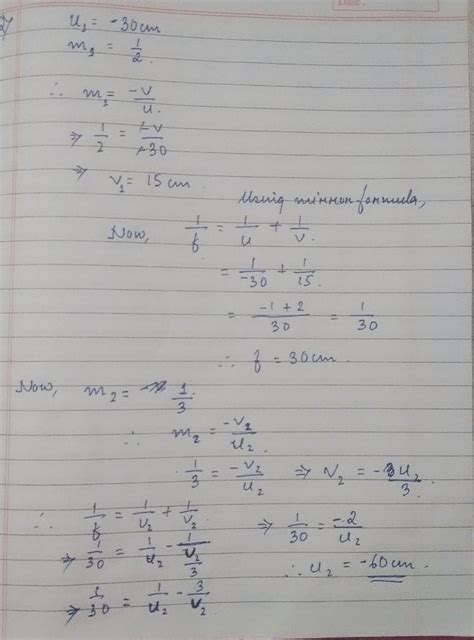 Date.
27
u₁ = -30cm
m₁ = 1/2.
∴ m₁ = -v/u.
⇒ 1/2 = -v/-30
⇒ v₁ = 15 cm.
Using mirror formula,
Now, 1/f = 1/u + 1/v.
= 1/-30 + 1/15.
= -1 + 2/30 = 1/30
∴ f = 30cm.
Now, m₂ = 1/3.
∴ m₂ = -v₂/u₂
1/3 = -v₂/u₂ ⇒ v₂ = -u₂/3.
∴ 1/f = 1/v₂ + 1/v₂ ⇒ 1/30 = -2/u₂
⇒ 1/30 = 1/u₂ - 1/v₂/3 ∴ u₂ = -60cm.
⇒ 1/30 = 1/u₂ - 3/v₂